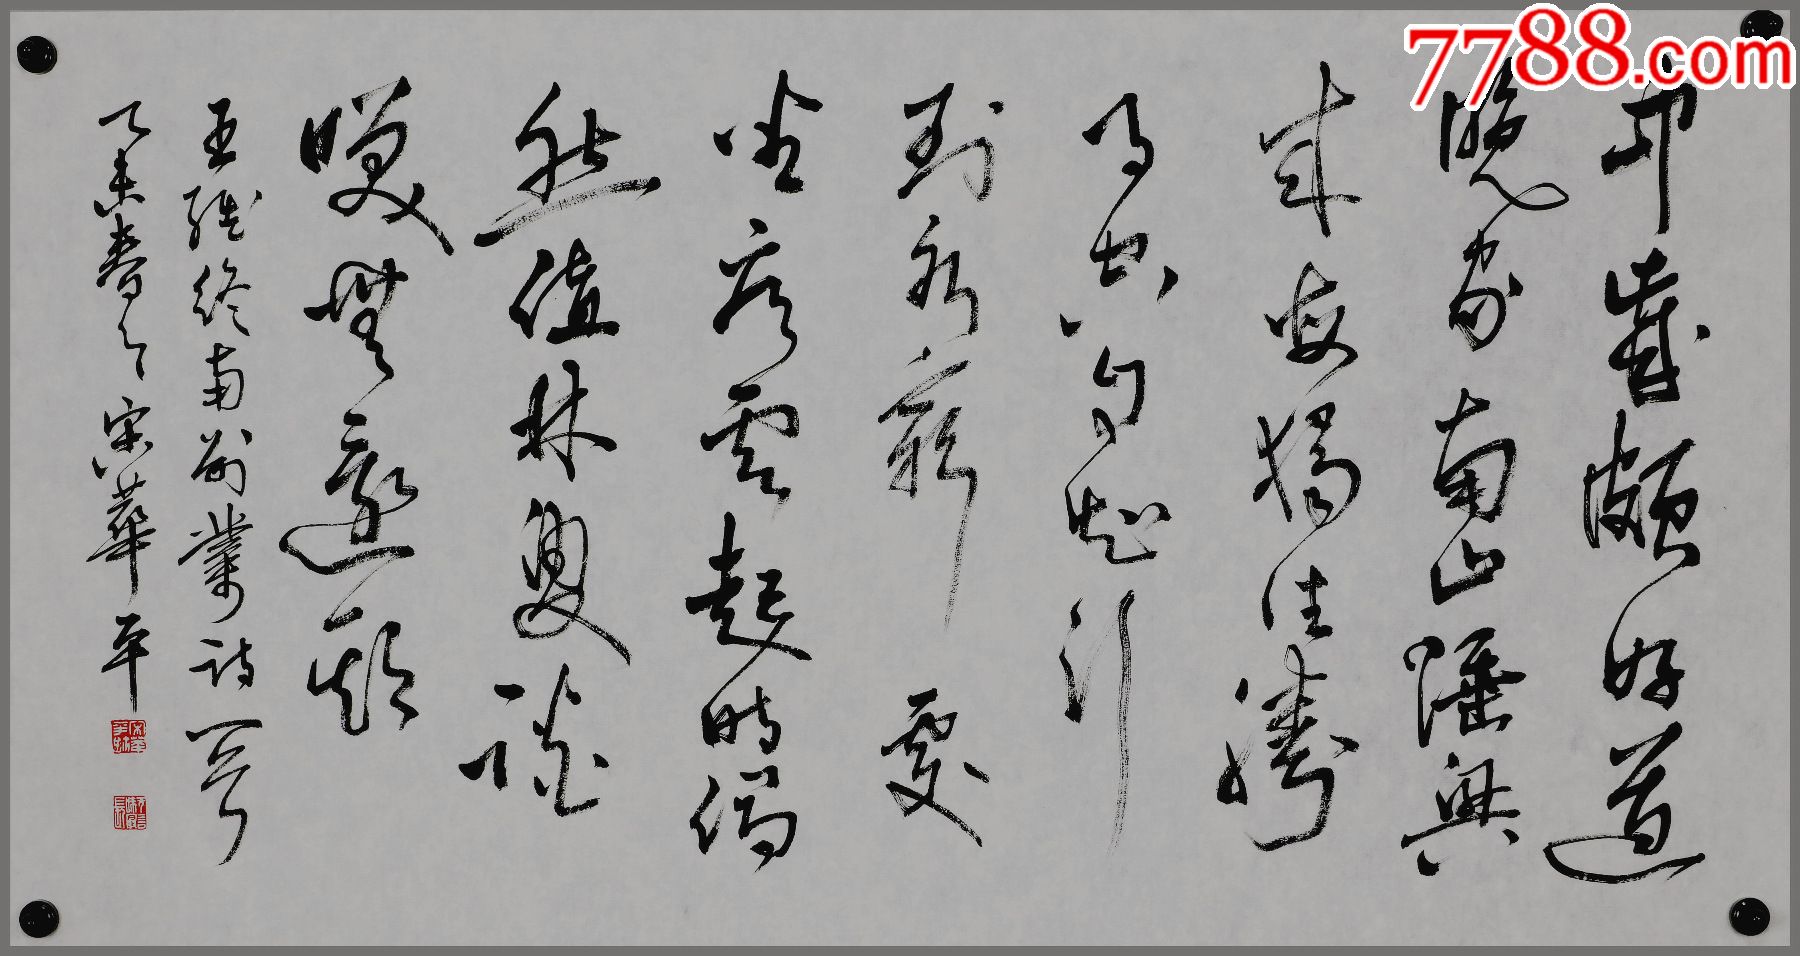 中歲頗好道
晚家南山陲興
來每獨往勝
事空自知行
到水窮處
坐看雲起時偶
然值林叟談
笑無還期
王維終南別業詩一首
乙未春 宋華平
7788.com